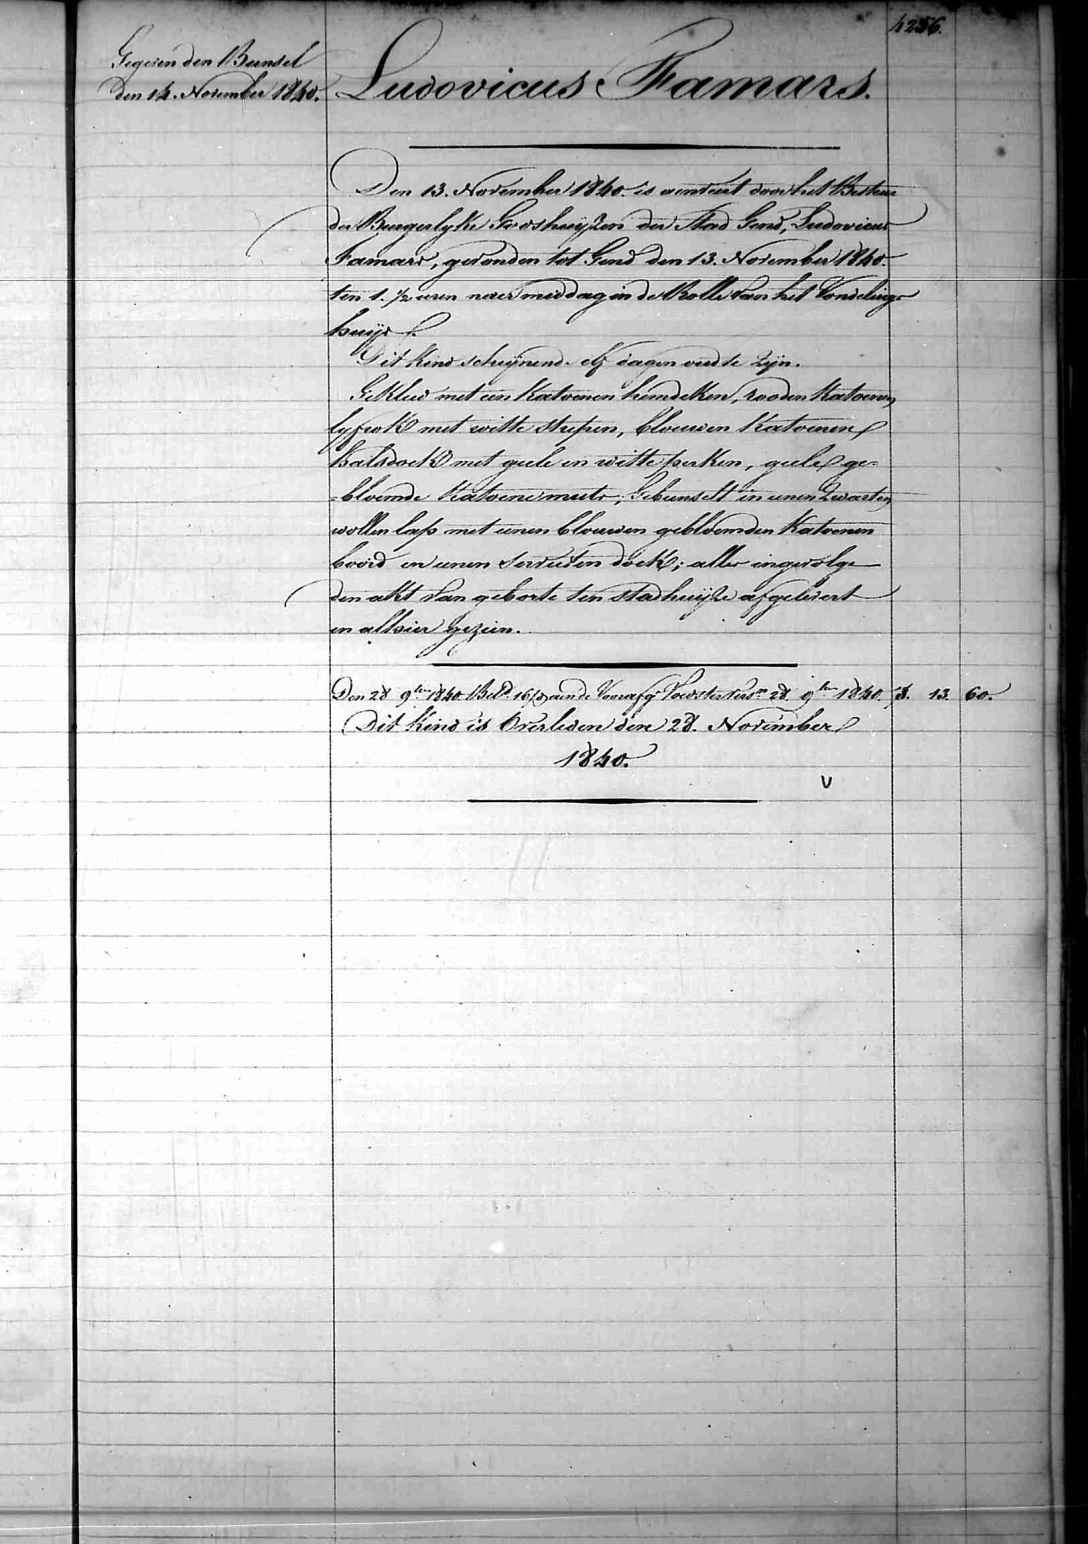 4256.
Gegeven den Bunsel
den 14. November 1840.
Ludovicus Famars.
Den 13. November 1840. is aenveert door het Bestier
der Burgerlyke Godshuijzen der Stad Gend, Ludovicus
Famars, gevonden tot Gend den 13. November 1840.
ten 1. ½ uren naer middag in de Rolle van het Vondelings-
huijs.
Dit kind scheijnend elf dagen oud te zijn.
Gekleed met een katoenen hemdeken, rooden katoenen
lyfrok met witte strepen, blouwen katoenen
halsdoek met geele en witte perken, geele ge-
-bloemde katoene muts, Gebunselt in eenen zwarten
wollen lap met eenen blouwen gebloemden katoenen
boord en eenen servietten doek; alles ingevolge
den akt van geborte ten stadhuijze afgelevert
en alhier gezien.
Den 28 9ber 1840 Betd. 16 aen de Voedster 28. 9ber 1840. 3. 13. 60.
Dit kind is Overleden den 28. November
1840.